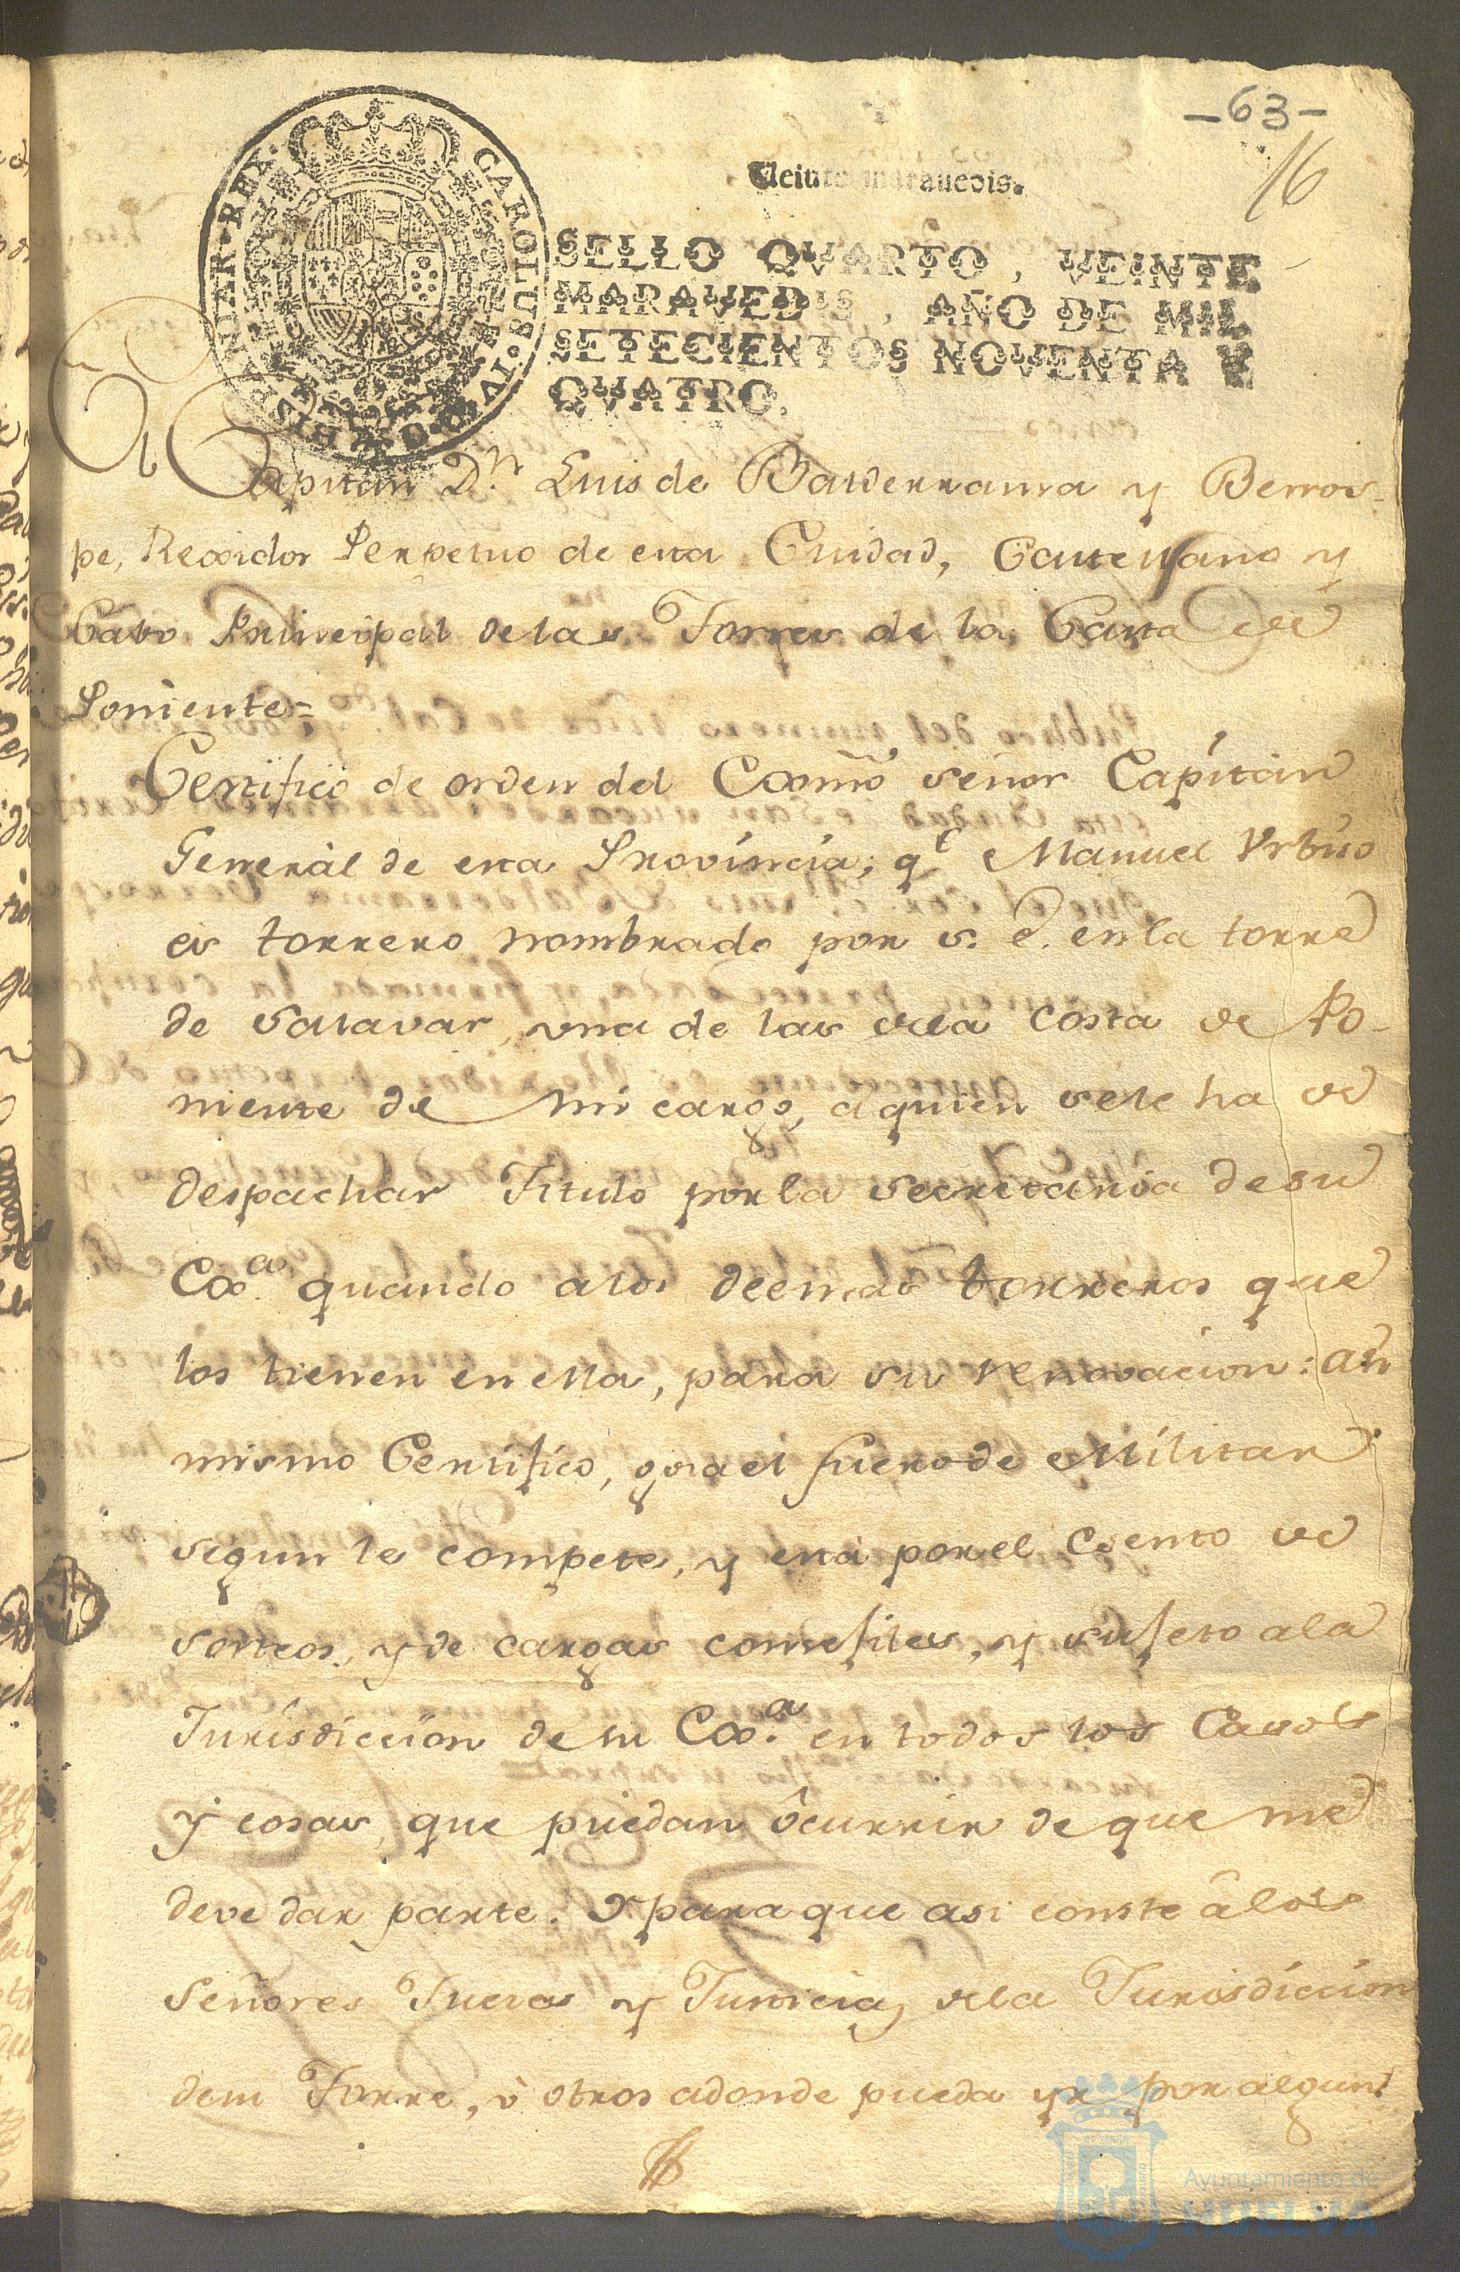 -63-
16
Veinte maravedis.
HISPANIAR. REX. CAROLUS. IV. D. G.
SELLO QVARTO, VEINTE
MARAVEDIS, AÑO DE MIL
SETECIENTOS NOVENTA Y
QVATRO.
Capitan D.n Luis de Balderrama y Berros-
pe, Rexidor Perpetuo de esta Ciudad, Castellano y
Cabo Principal de las Torres de la Costa de
Poniente=
Certifico de orden del Exmõ señor Capitan
General de esta Provincia; q.e Manuel Urbno
es torrero nombrado por s. e. en la torre
de salavar, una de las dela costa de Po-
niente de mi cargo, a quien sele ha de
despachar Titulo por la secretaria de su
Ex.a quando a los demas torreros que
los tienen en ella, para su renovacion: asi
mismo Certifico, goza el fuero de Militar
segun le compete, y esta por el Csento de
sorteos, y de cargas consejiles, y sujeto a la
Jurisdiccion de su Ex.a en todos los Casos
y cosas, que puedan ôcurrir de que me
deve dar parte. Y para que asi conste â los
Señores Jueces y Justicias dela Jurisdiccion
desu Torre, ò otros adonde pueda yr por algun
Ayuntamiento de
HUELVA